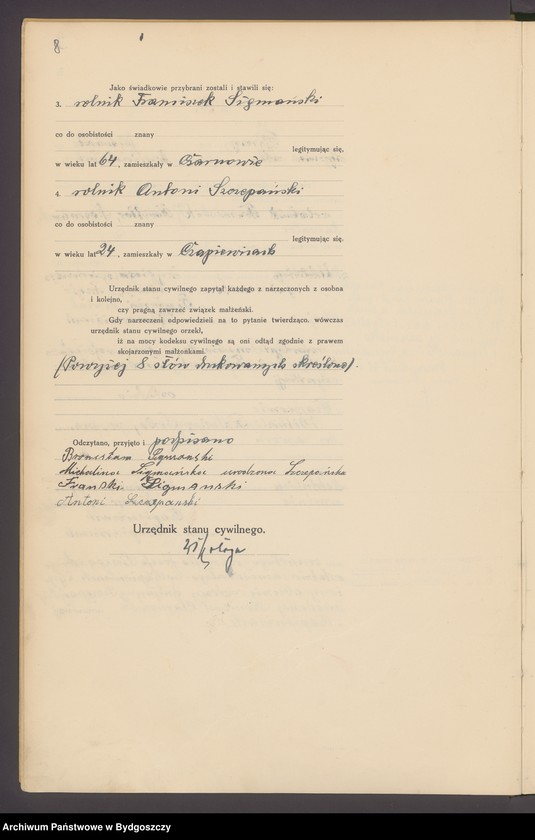 8
Jako świadkowie przybrani zostali i stawili się:
3. rolnik Franciszek Sigmański
co do osobistości znany
legitymując się,
w wieku lat 64, zamieszkały w Czarnowie
4. rolnik Antoni Szczepański
co do osobistości znany
legitymując się,
w wieku lat 24, zamieszkały w Czapiewicach
Urzędnik stanu cywilnego zapytał każdego z narzeczonych z osobna
i kolejno,
czy pragną zawrzeć związek małżeński.
Gdy narzeczeni odpowiedzieli na to pytanie twierdząco, wówczas
urzędnik stanu cywilnego orzekł,
iż na mocy kodeksu cywilnego są oni odtąd zgodnie z prawem
skojarzonymi małżonkami.
(Powyżej 8 słów drukowanych skreślono).
Odczytano, przyjęto i podpisano
Bronisław Sigmański
Michalina Sigmańska urodzona Szczepańska
Sigmanski
Antoni Szczepanski
Urzędnik stanu cywilnego.
Archiwum Państwowe w Bydgoszczy